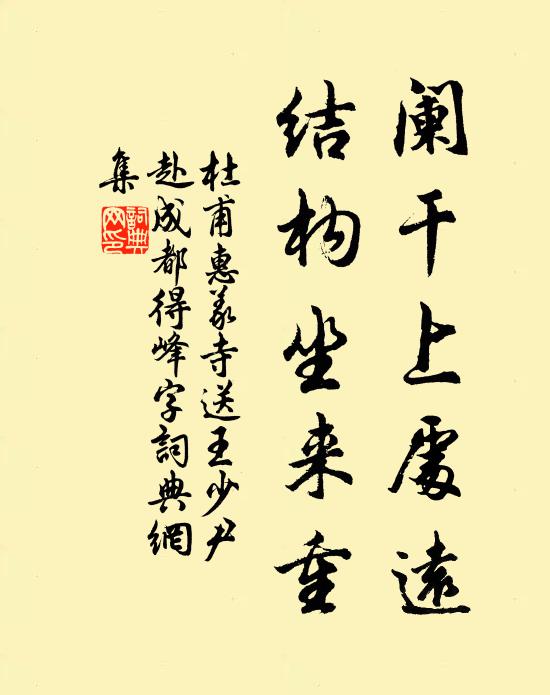 阑干上處遠
结构坐来重
杜甫惠义寺送王少尹
赴成都得峰字詞典網
集
詞典
网印